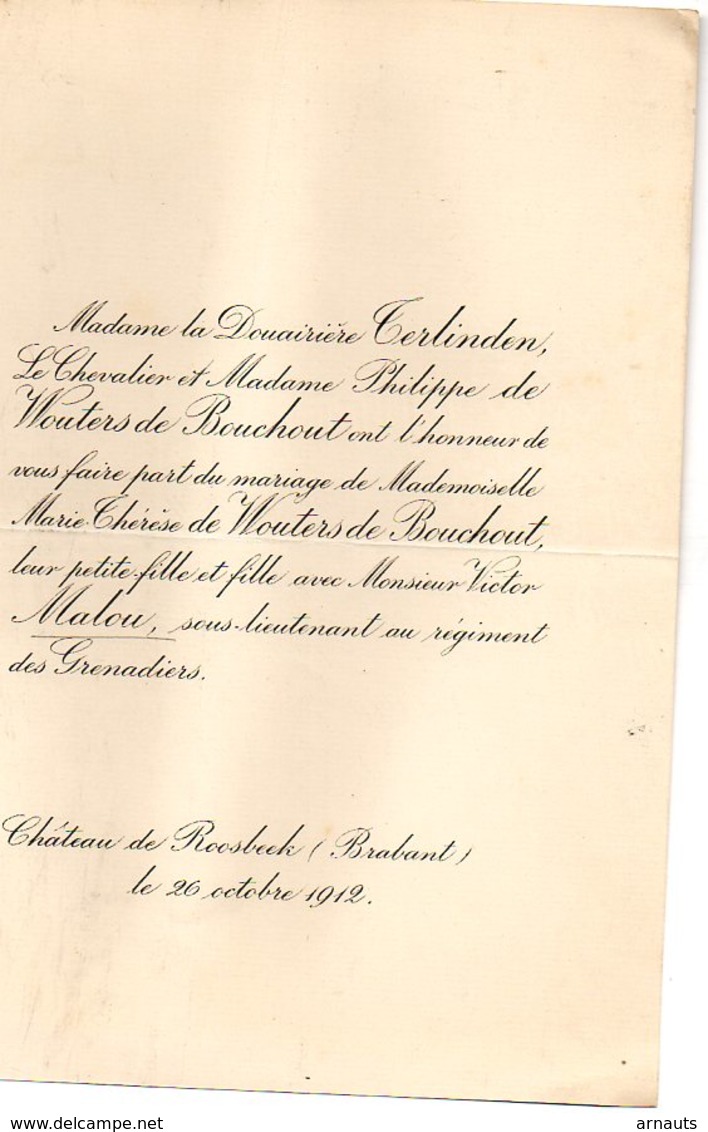 Madame la Douairière Terlinden,
Le Chevalier et Madame Philippe de
Wouters de Bouchout ont l'honneur de
vous faire part du mariage de Mademoiselle
Marie-Thérèse de Wouters de Bouchout,
leur petite-fille et fille avec Monsieur Victor
Malou, sous-lieutenant au régiment
des Grenadiers.
Château de Roosbeek (Brabant)
le 26 octobre 1912.
delcampe.net
arnauts